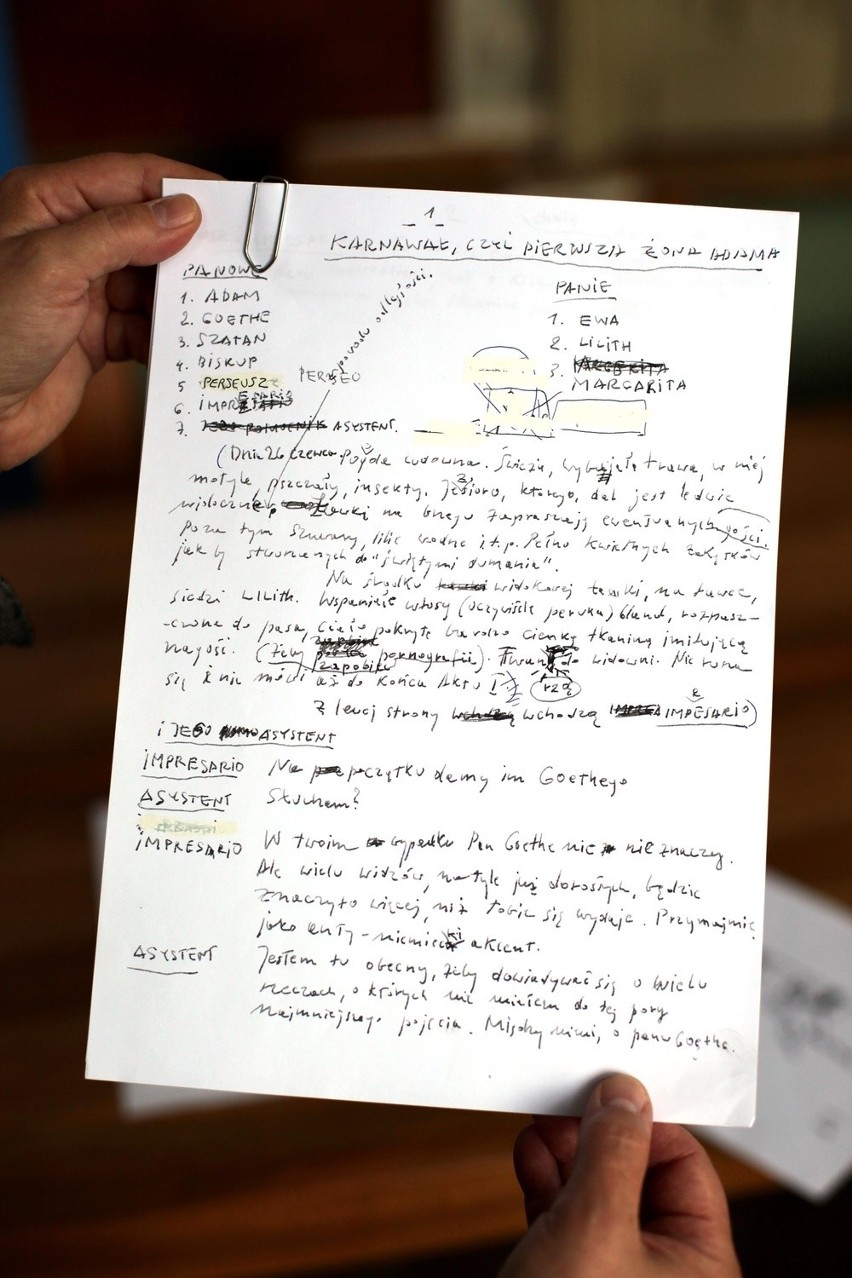 - 1 -
KARNAWAŁ, CZYLI PIERWSZA ŻONA ADAMA
PANOWIE
1. ADAM
2. GOETHE
3. SZATAN
4. BISKUP
5 PERSEUSZ PERSEO
6. IMPRESARIO
7. ASYSTENT.
z powodu odległości.
PANIE
1. EWA
2. LILITH
3. MARGARITA
(Dnia 26 czerwca. Pogoda cudowna. Świeża, wybujała trawa, w niej
motyle, pszczoły, insekty. Jezioro, którego dal jest ledwie
widoczna, Ławki na brzegu zapraszają ewentualnych gości.
Poza tym szuwary, lilie wodne i.t.p. Pełno kwietnych zakątków
jak by stworzonych do "świętymi dumania".
Na środku widokowej ławki, na ławce,
siedzi LILITH. Wspaniałe włosy (oczywiście peruka) blond, rozpusz-
-czone do pasa, ciało pokryte bardzo cienką tkaniną imitującą
nagość. (żeby zapobiec pornografii). Twarzą do widowni. Nie rusza
się i nic nie mówi aż do końca Aktu I.
Z lewej strony wchodzą IMPRESARIO)
i JEGO ASYSTENT
IMPRESARIO Na początku damy im Goethego
ASYSTENT Słucham?
IMPRESARIO W twoim wypadku Pan Goethe nie nic znaczy.
Ale wielu widzów, na tyle już dorosłych, będzie
znaczyło więcej, niż tobie się wydaje. Przynajmniej
jako anty-niemiecki akcent.
ASYSTENT Jestem tu obecny, żeby dowiadywać się o wielu
rzeczach, o których nie miałem do tej pory
najmniejszego pojęcia. Między nimi, o panu Goethe.